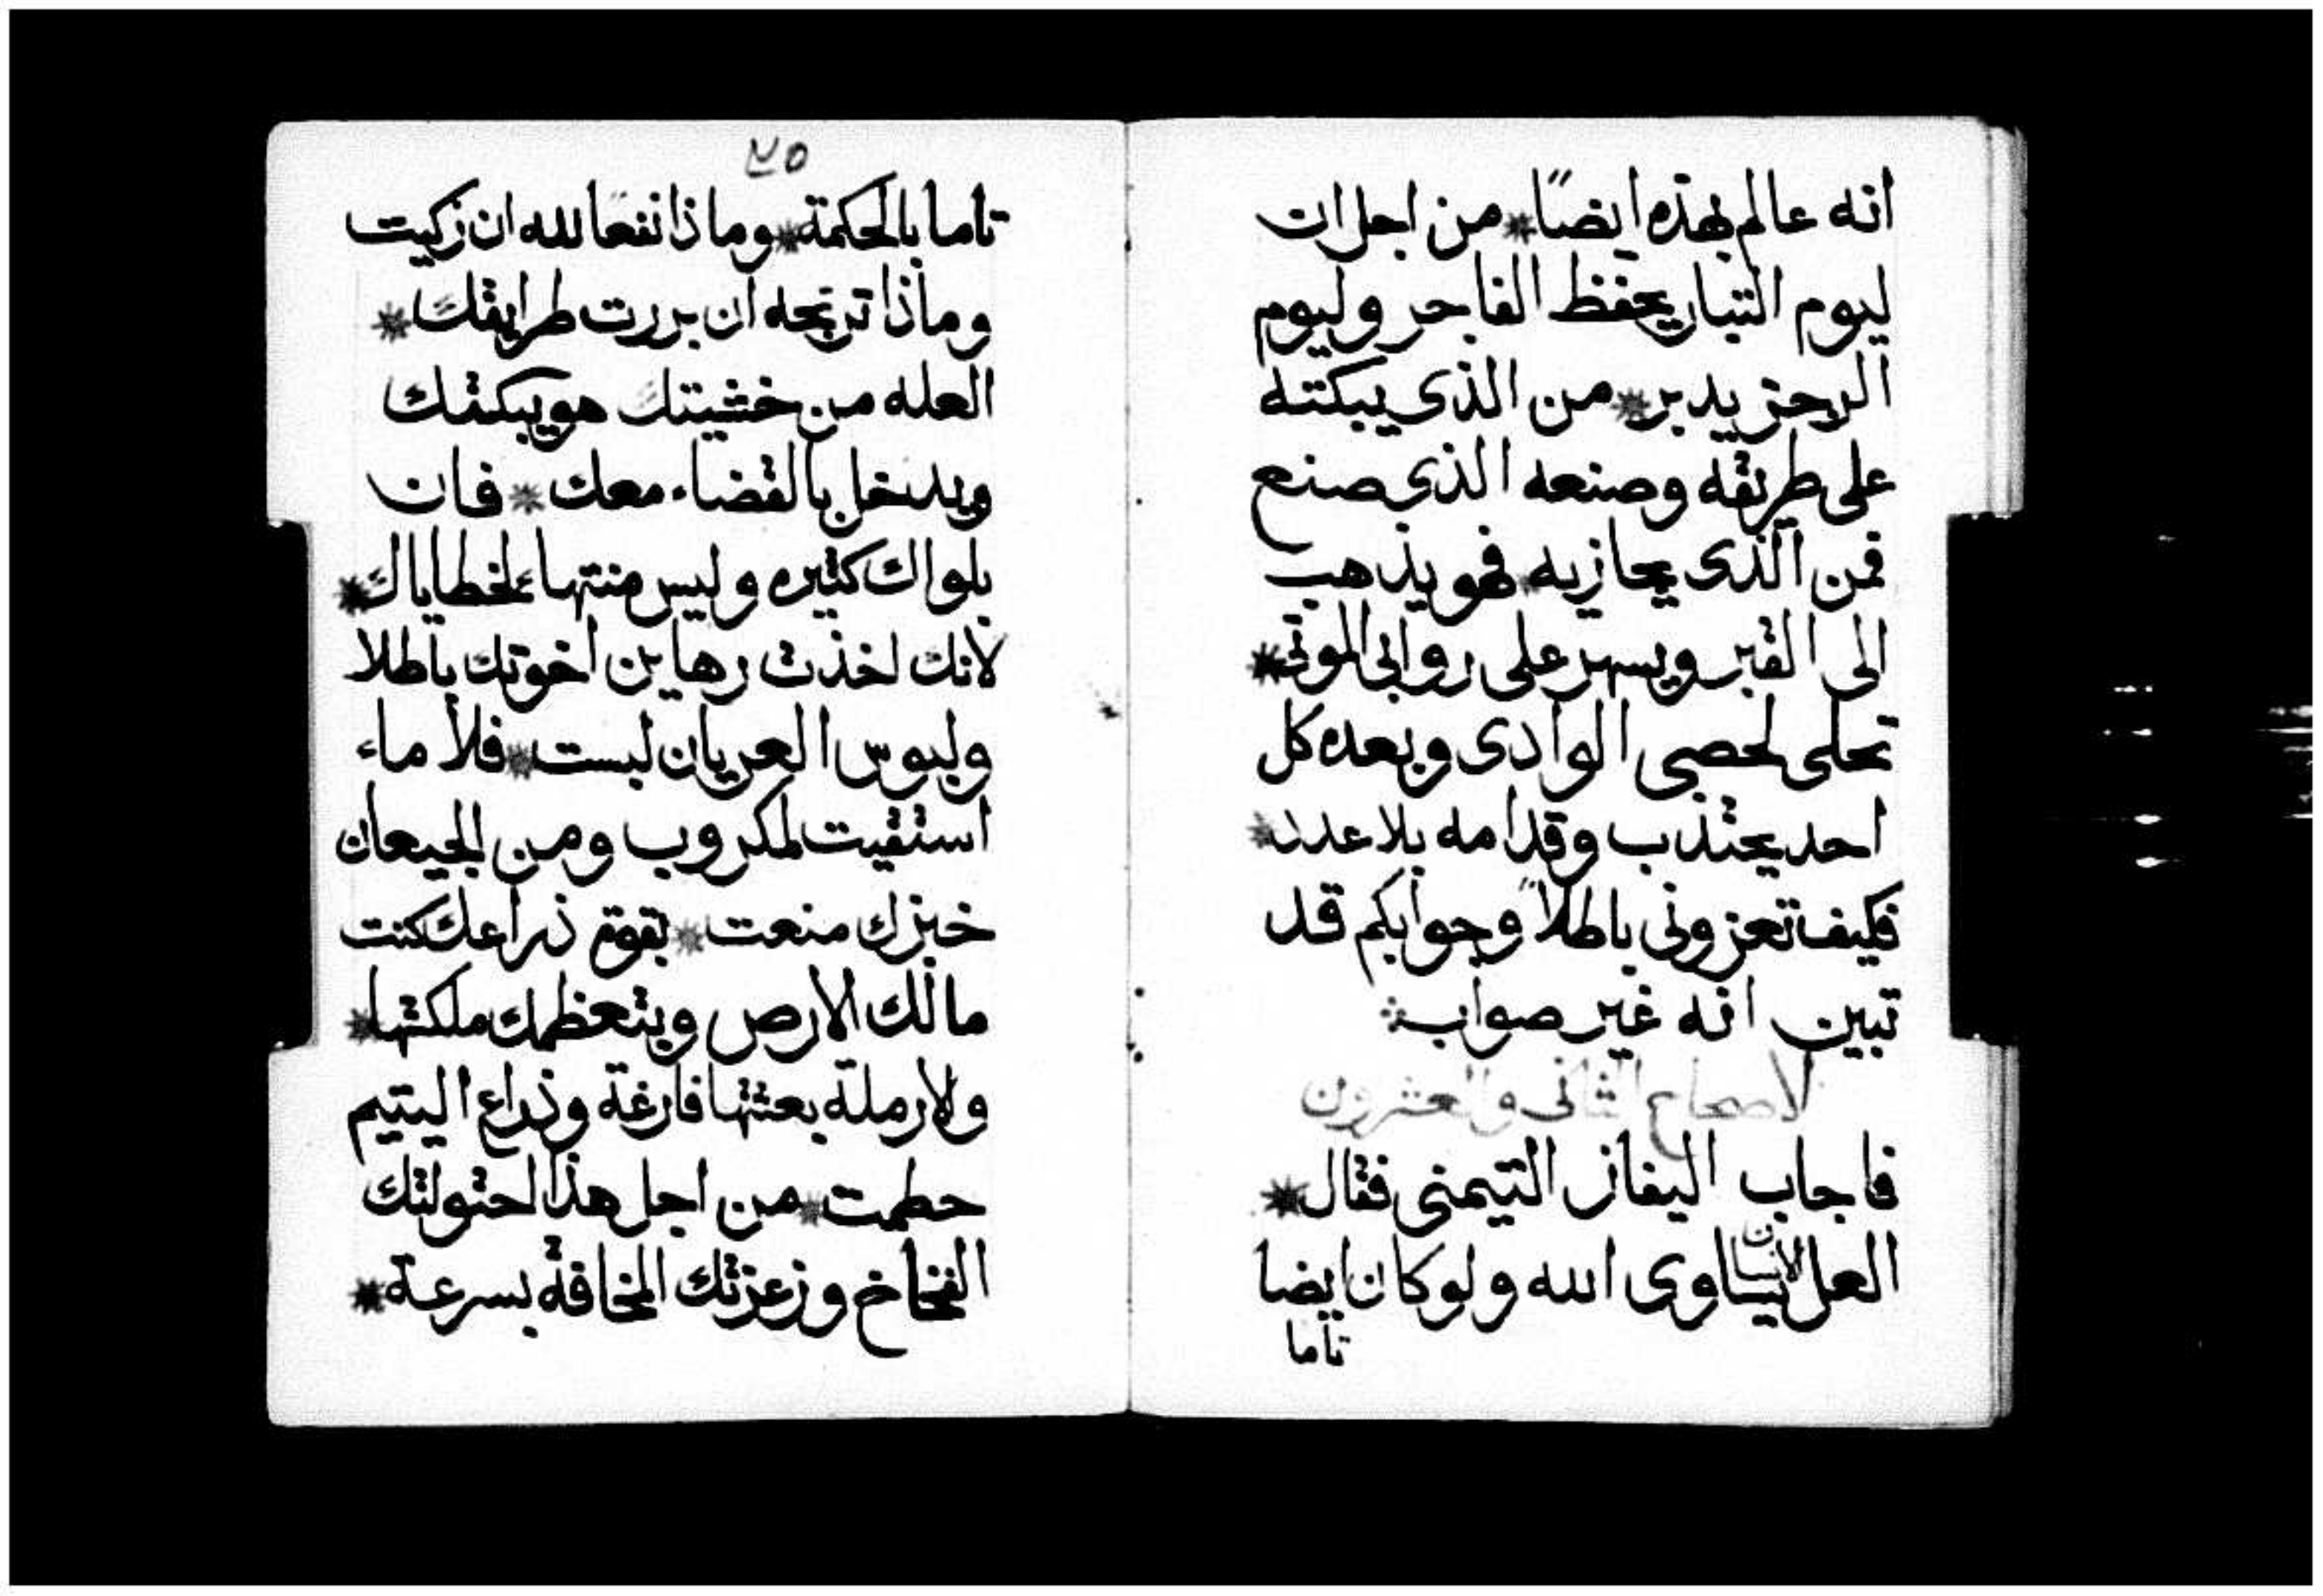 انه عالم بهذه ايضًا * من اجل ان
ليوم التبار يحفظ الفاجر وليوم
الرجز يدبر * من الذى يبكته
على طريقه وصنعه الذى صنع
فمن الذى يجازيه * فهو يذهب
الى القبر ويسهر على روابى الموتى *
تحلى لحصى الوادى وبعده كل
احد يجتذب وقدامه بلا عدد *
فكيف تعزونى باطلاً وجوابكم قد
تبين انه غير صواب
الاصحاح الثانى والعشرون
فاجاب اليفاز التيمنى فقال *
العل الانسان يساوى الله ولو كان ايضا
تاما
٢٥
تاما بالحكمة * وماذا نفعا لله ان زكيت
وماذا تربحه ان بررت طرايقك *
العله من خشيتك هو يبكتك
ويدخل بالقضاء معك * فان
بلواك كثيره وليس منتهاء لخطاياك *
لانك اخذت رهاين اخوتك باطلا
ولبوس العريان لبست * فلا ماء
استقيت لمكروب ومن الجيعان
خبزك منعت * بقوة ذراعك كنت
مالك الارض وبتعظمك ملكتها *
ولارملة بعثتها فارغة وذراع اليتيم
حطمت * من اجل هذا احتولتك
الفخاخ وزعزتك المخافة بسرعة *